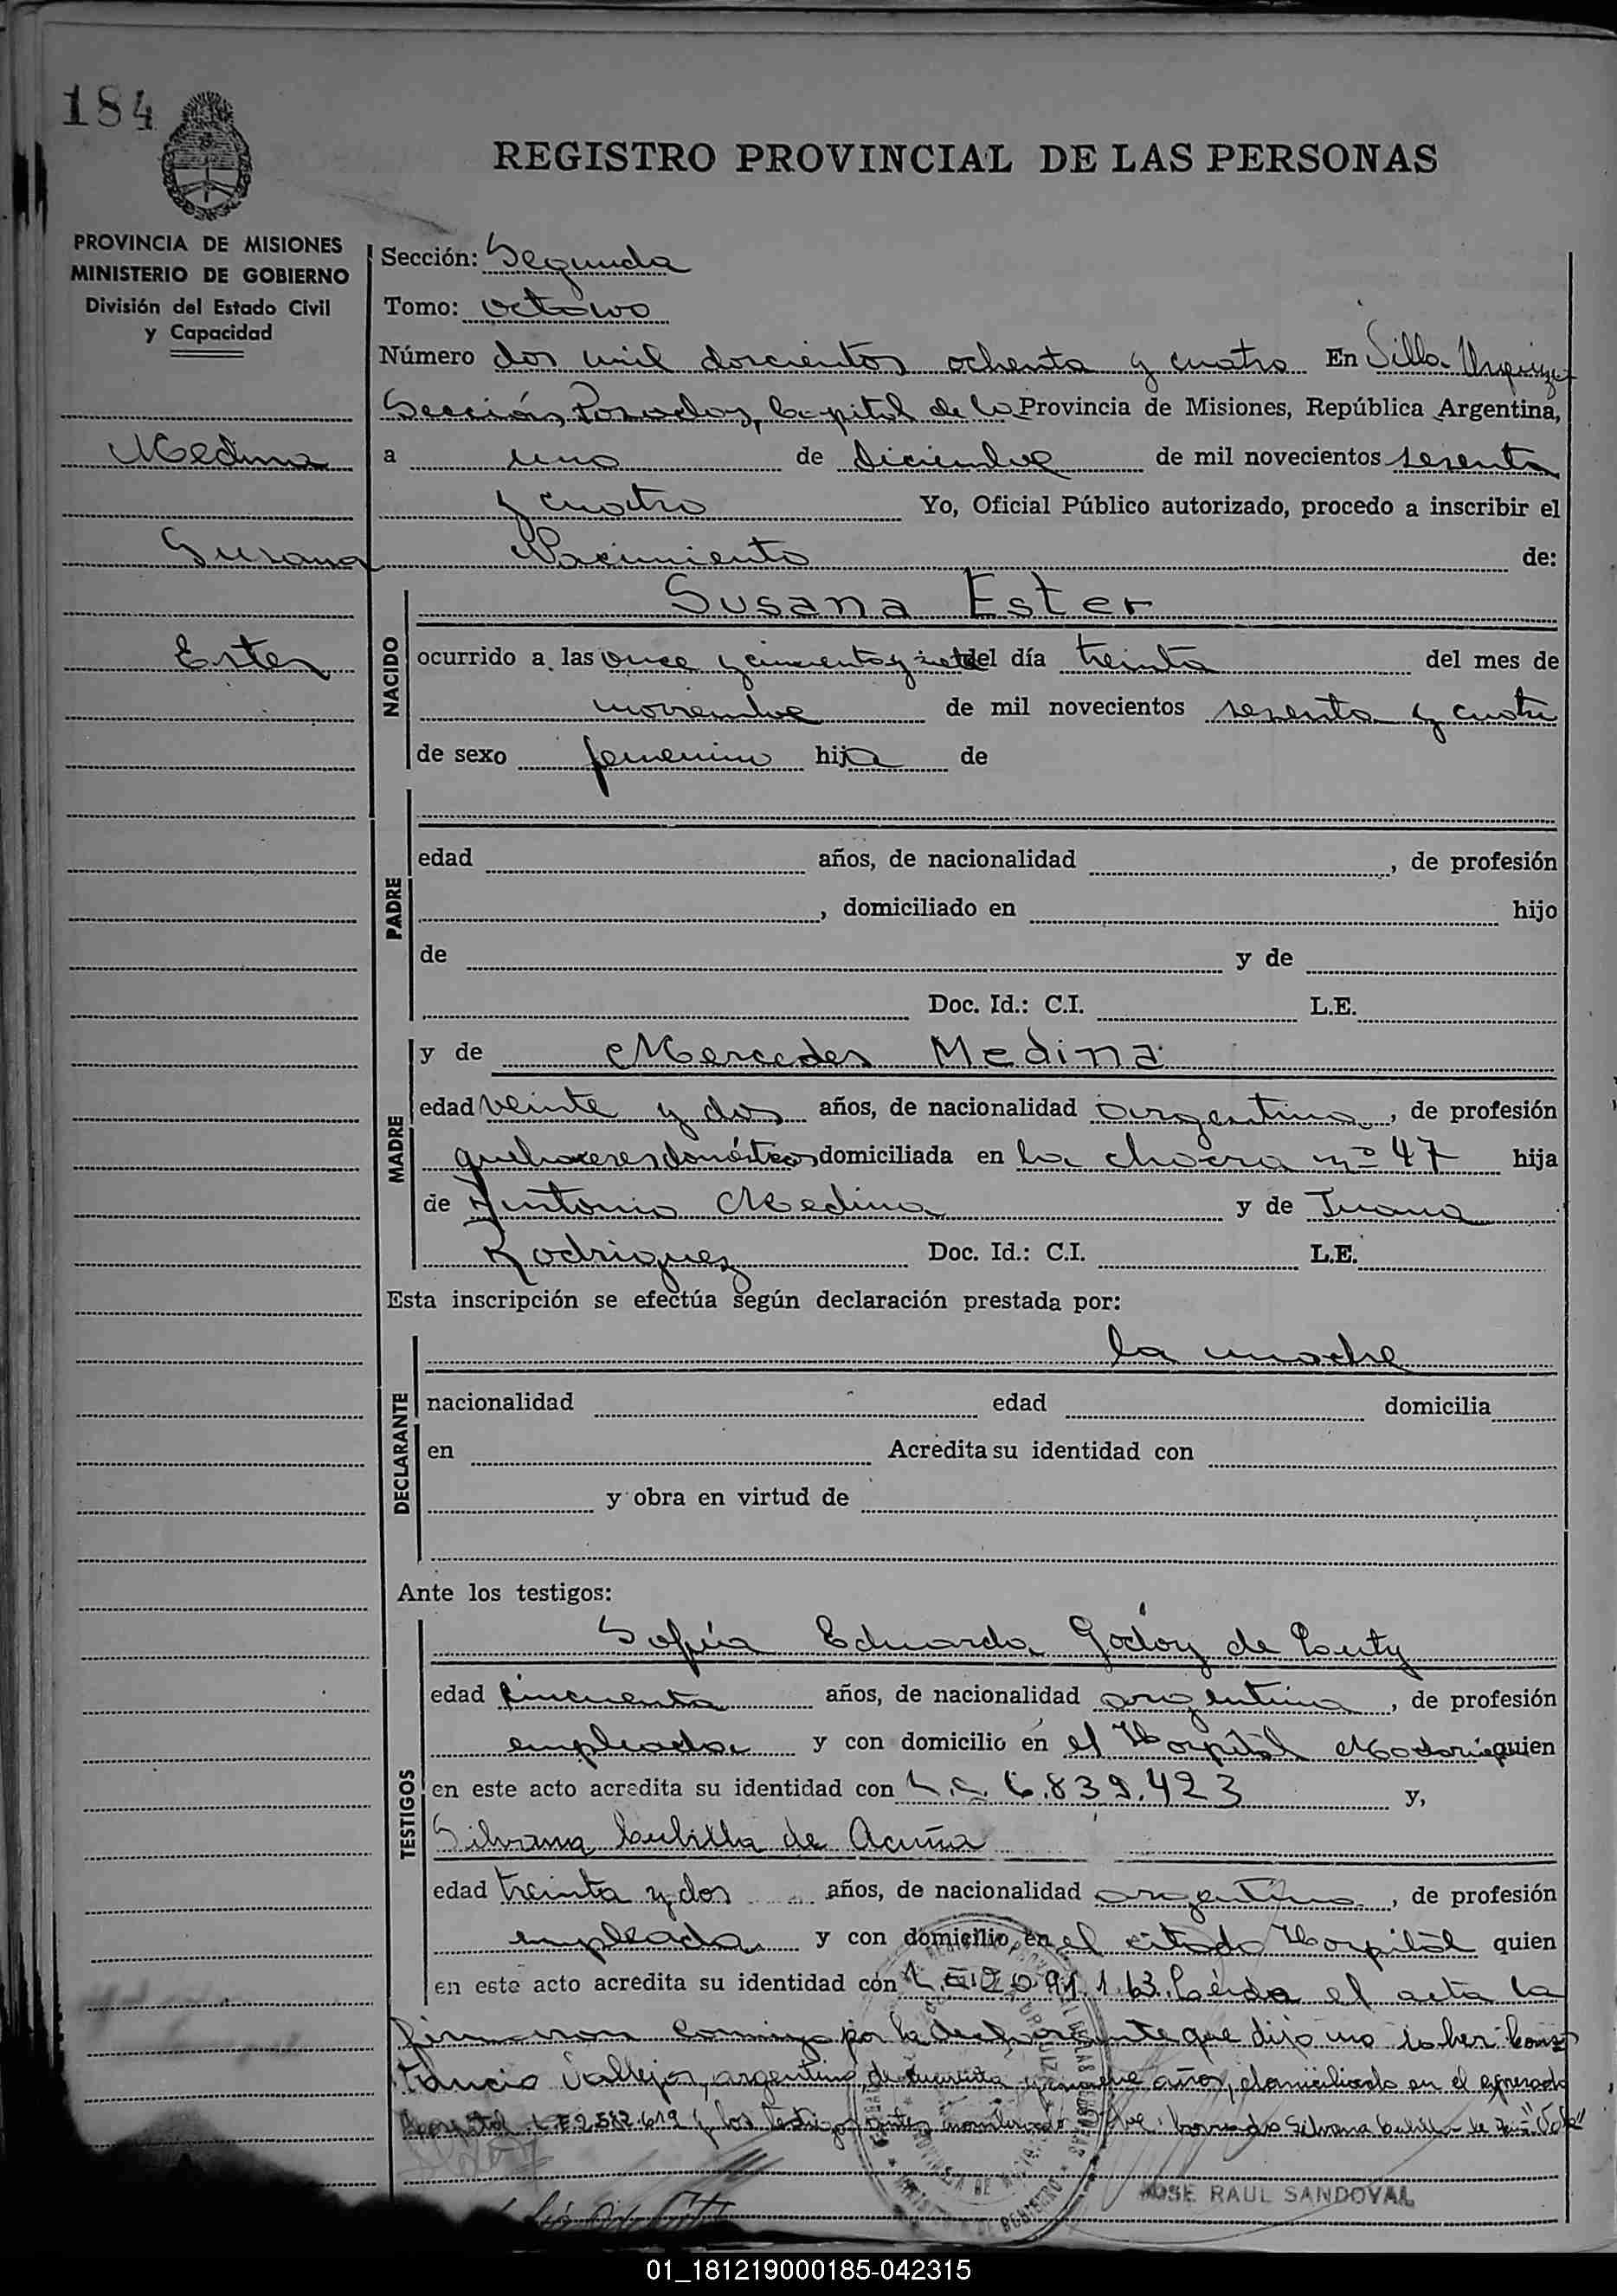 184
REGISTRO PROVINCIAL DE LAS PERSONAS
PROVINCIA DE MISIONES
MINISTERIO DE GOBIERNO
División del Estado Civil
y Capacidad
Medina
Susana
Ester
Sección: Segunda
Tomo: octavo
Número dos mil doscientos ochenta y cuatro En Villa Urquiza
Sección, Posadas, Capital de la Provincia de Misiones, República Argentina,
a uno de diciembre de mil novecientos sesenta
y cuatro Yo, Oficial Público autorizado, procedo a inscribir el
Nacimiento de:
NACIDO
Susana Ester
ocurrido a las once y cincuenta y siete del día treinta del mes de
noviembre de mil novecientos sesenta y cuatro
de sexo femenino hija de
PADRE
edad años, de nacionalidad , de profesión
, domiciliado en hijo
de y de
Doc. Id.: C.I. L.E.
MADRE
y de Mercedes Medina
edad veinte y dos años, de nacionalidad argentina, de profesión
quehaceres domésticos domiciliada en la chacra nº 47 hija
de Antonio Medina y de Juana
Rodriguez Doc. Id.: C.I. L.E.
Esta inscripción se efectúa según declaración prestada por:
DECLARANTE
la madre
nacionalidad edad domicilia
en Acredita su identidad con
y obra en virtud de
Ante los testigos:
TESTIGOS
Sofía Eduarda Godoy de
edad cincuenta años, de nacionalidad argentina, de profesión
empleada y con domicilio en el Hospital quien
en este acto acredita su identidad con L.C. 6.839.423 y,
Silvana Cubilla de Acuña
edad treinta y dos años, de nacionalidad argentina, de profesión
empleada y con domicilio en el citado Hospital quien
en este acto acredita su identidad con Leida el acta la
firmaron conmigo por la declarante que dijo no saber
Vallejos, argentino, de años, domiciliado en el expresado
Hospital L.E. 2.582.619 y los testigos antes borrado Silvana Cubilla de
JOSE RAUL SANDOVAL
01_181219000185-042315